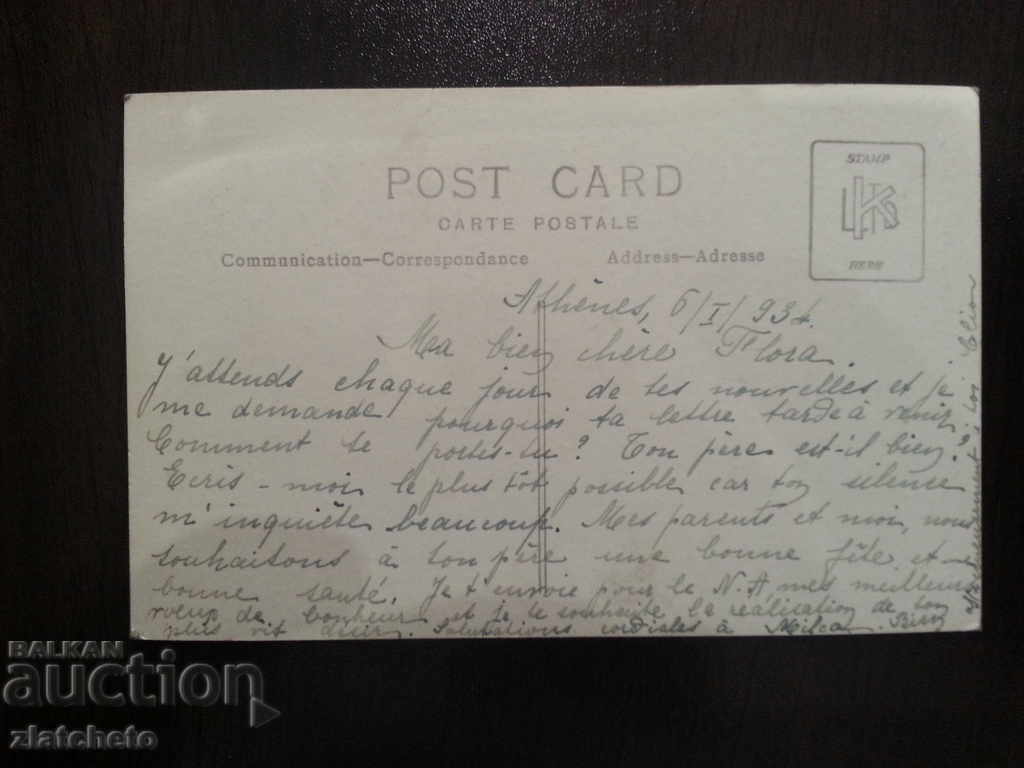 POST CARD
CARTE POSTALE
Communication—Correspondance
Address—Adresse
STAMP
HERE
Athènes, 6/I/934.
Ma bien chère Flora.
J'attends chaque jour de tes nouvelles et je
me demande pourquoi ta lettre tarde à venir.
Comment te portes-tu? Ton père est-il bien?
Ecris-moi le plus tôt possible car ton silence
m'inquiète beaucoup. Mes parents et moi, nous
souhaitons à ton père une bonne fête et une
bonne santé. Je t'envoie pour le N.A. mes meilleurs
voeux de bonheur et je te souhaite la réalisation de ton
plus vif désir. Salutations cordiales à Milca. Bien
ton Clion
BALKAN
auction
zlatcheto